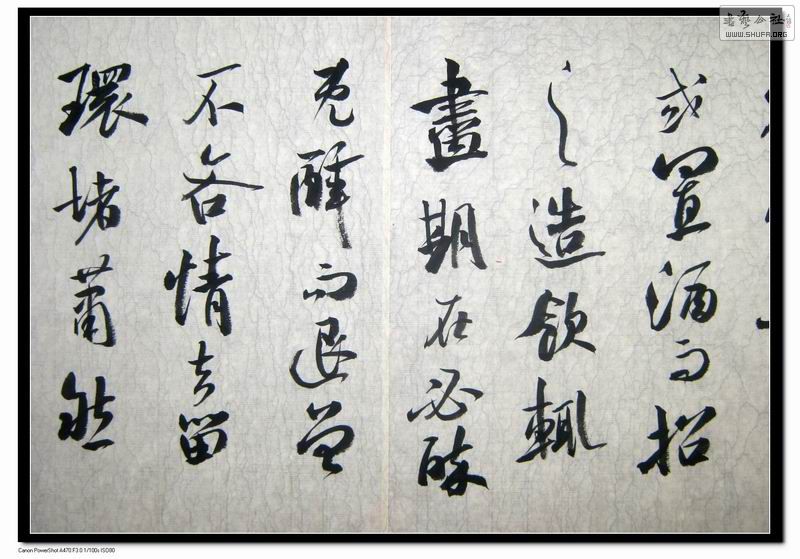 書藝公社
WWW.SHUFA.ORG
或置酒而招
之造飲輒
畫期在必酔
既酔而退曾
不吝情去留
環堵蕭然
Canon PowerShot A470 F3.0 1/100s ISO80